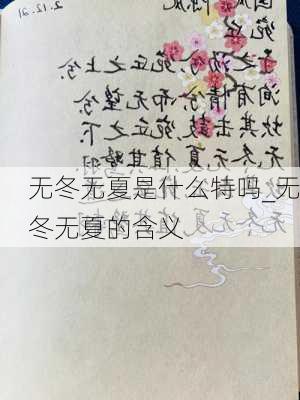 2.12.21
宛丘
子之汤兮,宛丘之上兮.
洵有情兮,而无望兮.
坎其击鼓,宛丘之下.
无冬无夏,值其鹭羽.
无冬无夏是什么特吗_无
冬无夏的含义